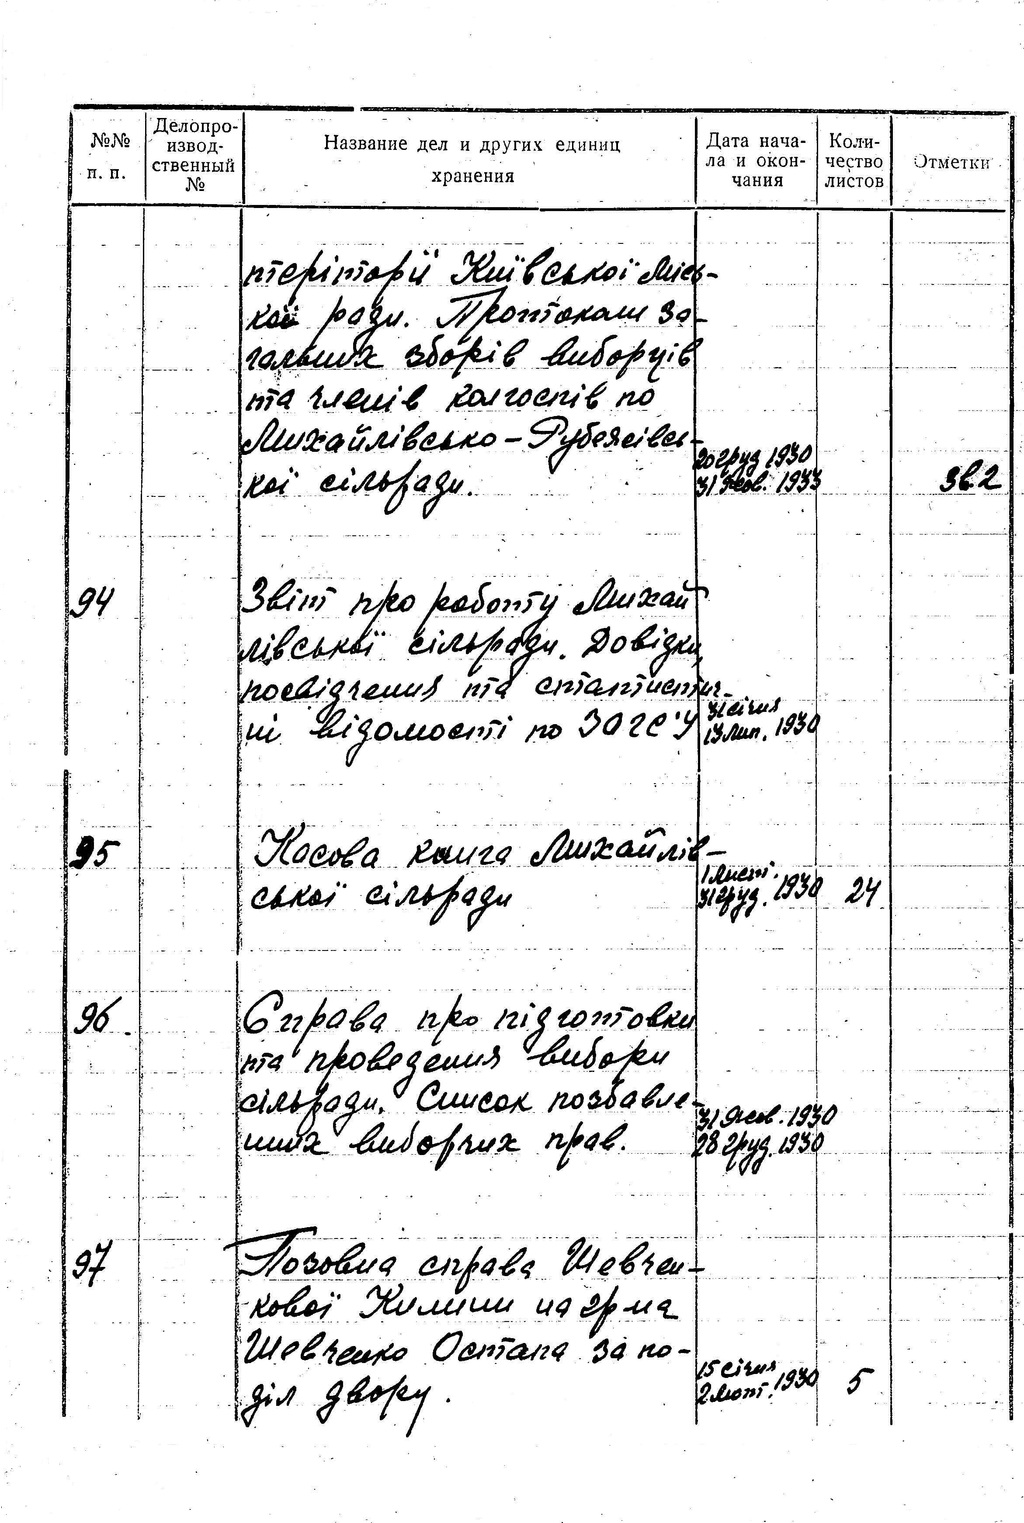 №№
п. п.
Делопро-
извод-
ственный
№
Название дел и других единиц
хранения
Дата нача-
ла и окон-
чания
Коли-
чество
листов
Отметки
територіїї Київської Місь-
кої ради. Протоколи за-
гальних зборів виборців
та членів колгоспів по
Михайлівсько-Рубежівсь-
кої сільради.
20 груд 1930
31 жов. 1933
Зв.2
94
Звіт про роботу Михай
лівської сільради. Довідки,
посвідчення та статистич-
ні відомості по ЗАГС'У
31 січня
13 лип. 1930
95
Касова книга Михайлів-
ської сільради
1 лист.
31 груд. 1930
24
96.
Справа про підготовки
та проведення вибори
сільради. Список позбавле-
нних виборчих прав.
31 жов. 1930
28 груд. 1930
97
Позовна справа Шевчен-
кової Килини на гр-на
Шевченко Остапа за по-
діл двору.
15 січня
2 лют. 1930
5